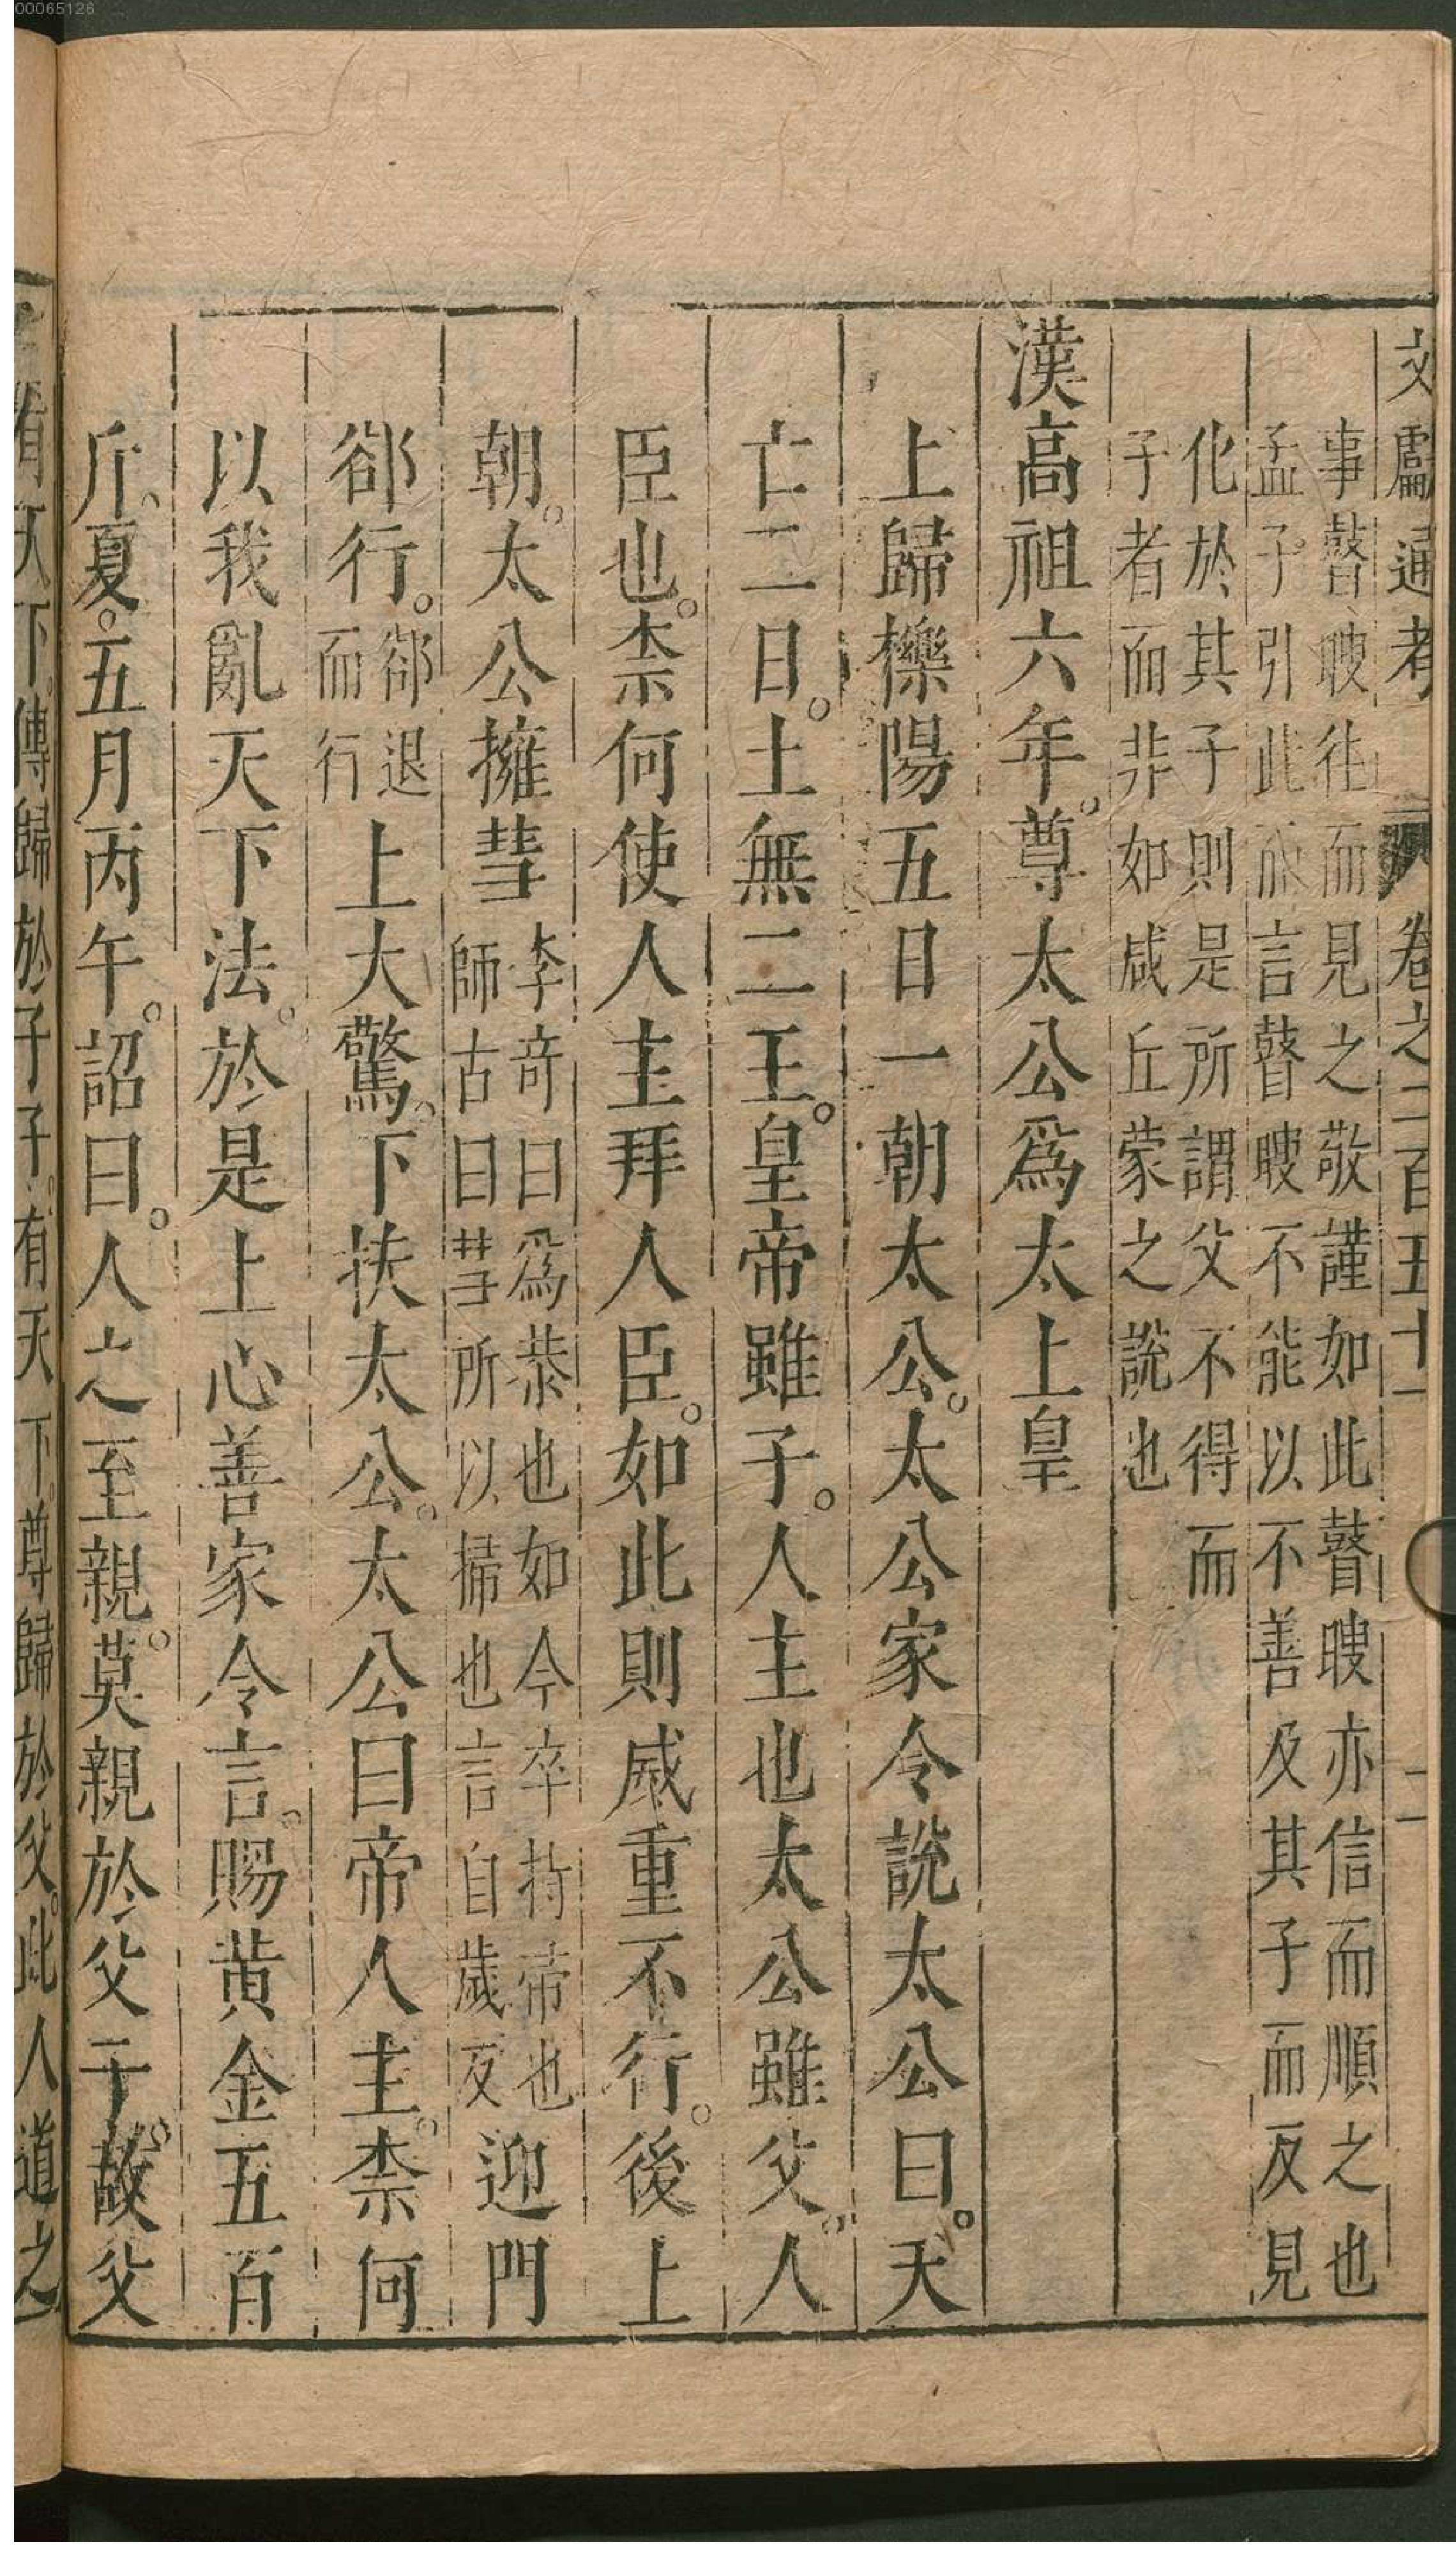 00065126
文獻通考 卷之二百五十一 二
事瞽瞍往而見之敬謹如此瞽瞍亦信而順之也
孟子引此而言瞽瞍不能以不善及其子而反見
化於其子則是所謂父不得而
子者而非如咸丘蒙之說也
漢高祖六年。尊太公爲太上皇
上歸櫟陽五日一朝太公。太公家令說太公曰。天
亡二日。土無二王。皇帝雖子。人主也太公雖父。人
臣也。柰何使人主拜人臣。如此則威重不行。後上
朝。太公擁彗李奇曰爲恭也如今卒持帚也師古曰彗所以掃也言自歲反迎門
郤行。郤退而行上大驚。下扶太公。太公曰帝人主。柰何
以我亂天下法。於是上心善家令言。賜黄金五百
斤。夏。五月丙午。詔曰。人之至親。莫親於父子。故父
有天下。傳歸於子。子。有天下。尊歸於父。此人道之